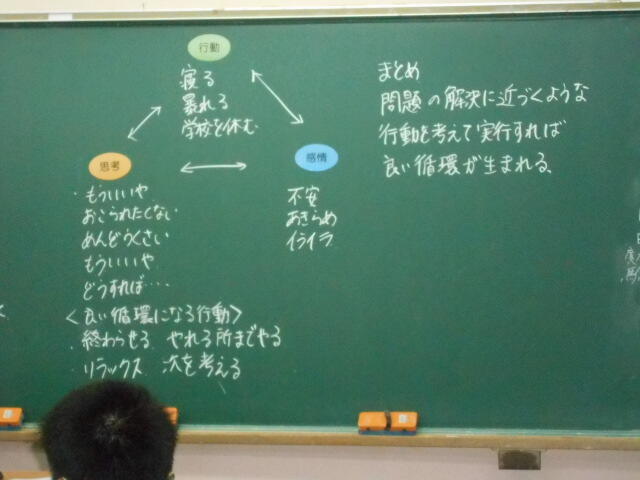 行動
寝る
暴れる
学校を休む
思考
・もういいや
おこられたくない
めんどうくさい
もういいや
どうすれば…
感情
不安
あきらめ
イライラ
<良い循環になる行動>
・終わらせる やれる所までやる
・リラックス 次を考える
まとめ
問題の解決に近づくような
行動を考えて実行すれば
良い循環が生まれる。